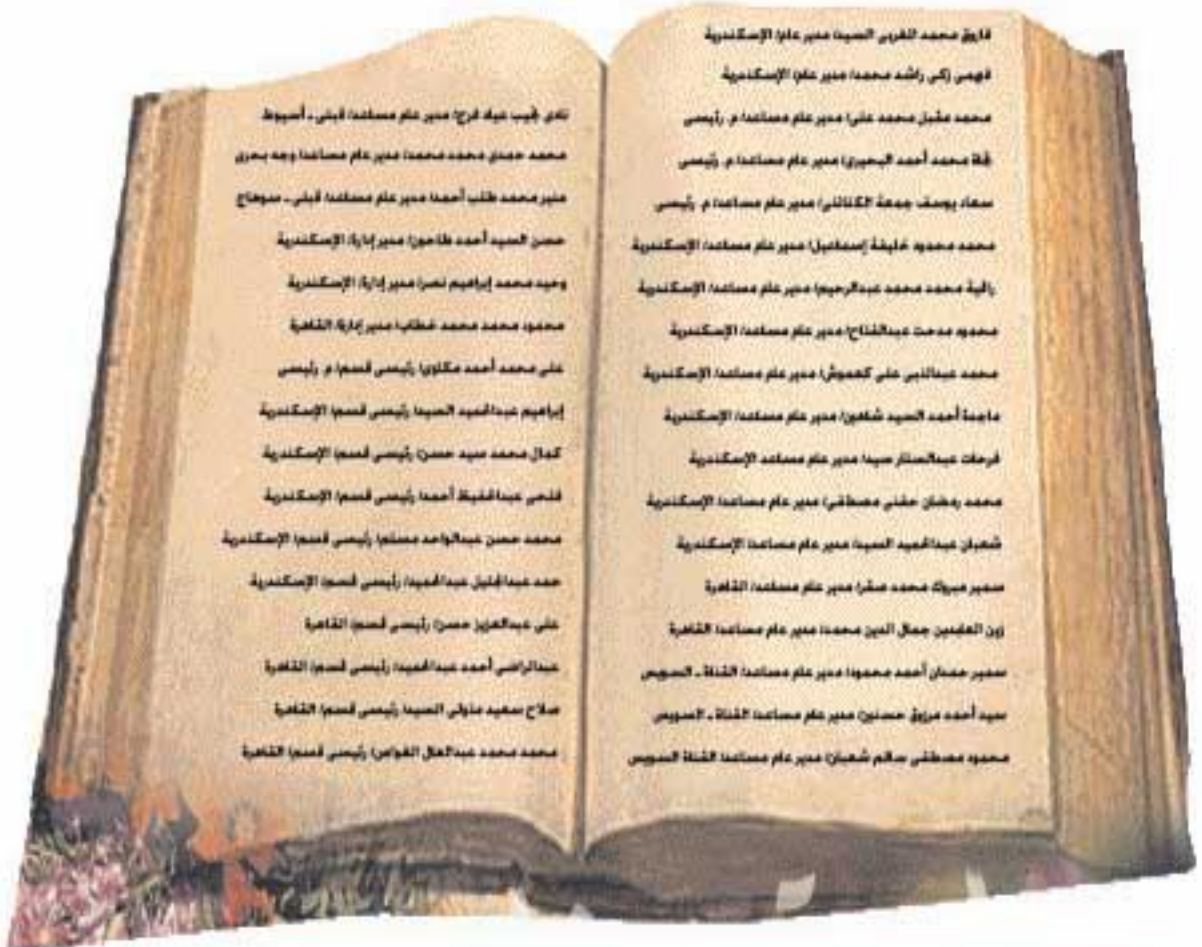 فاروق محمد المغربى السيد/ مدير عام/ الإسكندرية
فهمى زكى راشد محمد/ مدير عام/ الإسكندرية
محمد مقبل محمد على/ مدير عام مساعد/ م. رئيسى
نجاة محمد أحمد البحيرى/ مدير عام مساعد/ م. رئيسى
سعاد يوسف جمعة الكنانى/ مدير عام مساعد/ م. رئيسى
محمد محمود خليفة إسماعيل/ مدير عام مساعد/ الإسكندرية
راقية محمد محمد عبدالرحيم/ مدير عام مساعد/ الإسكندرية
محمود مدحت عبدالفتاح/ مدير عام مساعد/ الإسكندرية
محمد عبدالنبى على كعموش/ مدير عام مساعد/ الإسكندرية
ماجدة أحمد السيد شاهين/ مدير عام مساعد/ الإسكندرية
فرحات عبدالستار سيد/ مدير عام مساعد الإسكندرية
محمد رمضان حفنى مصطفى/ مدير عام مساعد/ الإسكندرية
شعبان عبدالحميد السيد/ مدير عام مساعد/ الإسكندرية
سمير مبروك محمد صقر/ مدير عام مساعد/ القاهرة
زين العابدين جمال الدين محمد/ مدير عام مساعد/ القاهرة
سمير حمدان أحمد محمود/ مدير عام مساعد/ القناة ـ السويس
سيد أحمد مرزوق حسنين/ مدير عام مساعد/ القناة ـ السويس
محمود مصطفى سالم شعبان/ مدير عام مساعد/ القناة السويس
نادى نجيب عياد فرج/ مدير عام مساعد/ قبلى ـ أسيوط
محمد حمدى محمد محمد/ مدير عام مساعد/ وجه بحرى
منير محمد طلب أحمد/ مدير عام مساعد/ قبلى ـ سوهاج
حسن السيد أحمد طاحون/ مدير إدارة/ الإسكندرية
وحيد محمد إبراهيم نصر/ مدير إدارة/ الإسكندرية
محمود محمد محمد خطاب/ مدير إدارة/ القاهرة
على محمد أحمد مكاوى/ رئيسى قسم/ م. رئيسى
إبراهيم عبدالحميد السيد/ رئيسى قسم/ الإسكندرية
كمال محمد سيد حسن/ رئيسى قسم/ الإسكندرية
فتحى عبدالحفيظ أحمد/ رئيسى قسم/ الإسكندرية
محمد حسن عبدالواحد مسلم/ رئيسى قسم/ الإسكندرية
حمد عبدالجليل عبدالحميد/ رئيسى قسم/ الإسكندرية
على عبدالعزيز حسن/ رئيسى قسم/ القاهرة
عبدالراضى أحمد عبدالحميد/ رئيسى قسم/ القاهرة
صلاح سعيد متولى السيد/ رئيسى قسم/ القاهرة
محمد محمد عبدالعال الغواص/ رئيسى قسم/ القاهرة